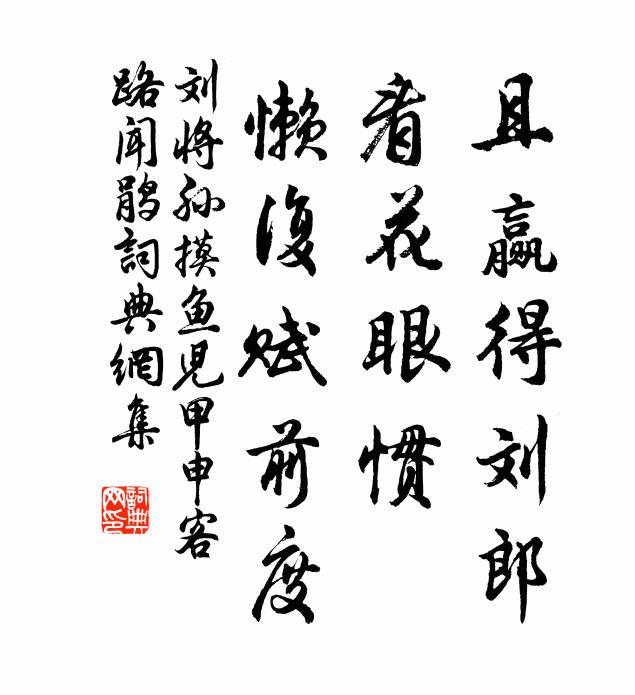 且赢得刘郎
看花眼惯
懒复赋前度
刘将孙摸鱼児甲申客
路闻鹃詞典網集
詞典网印